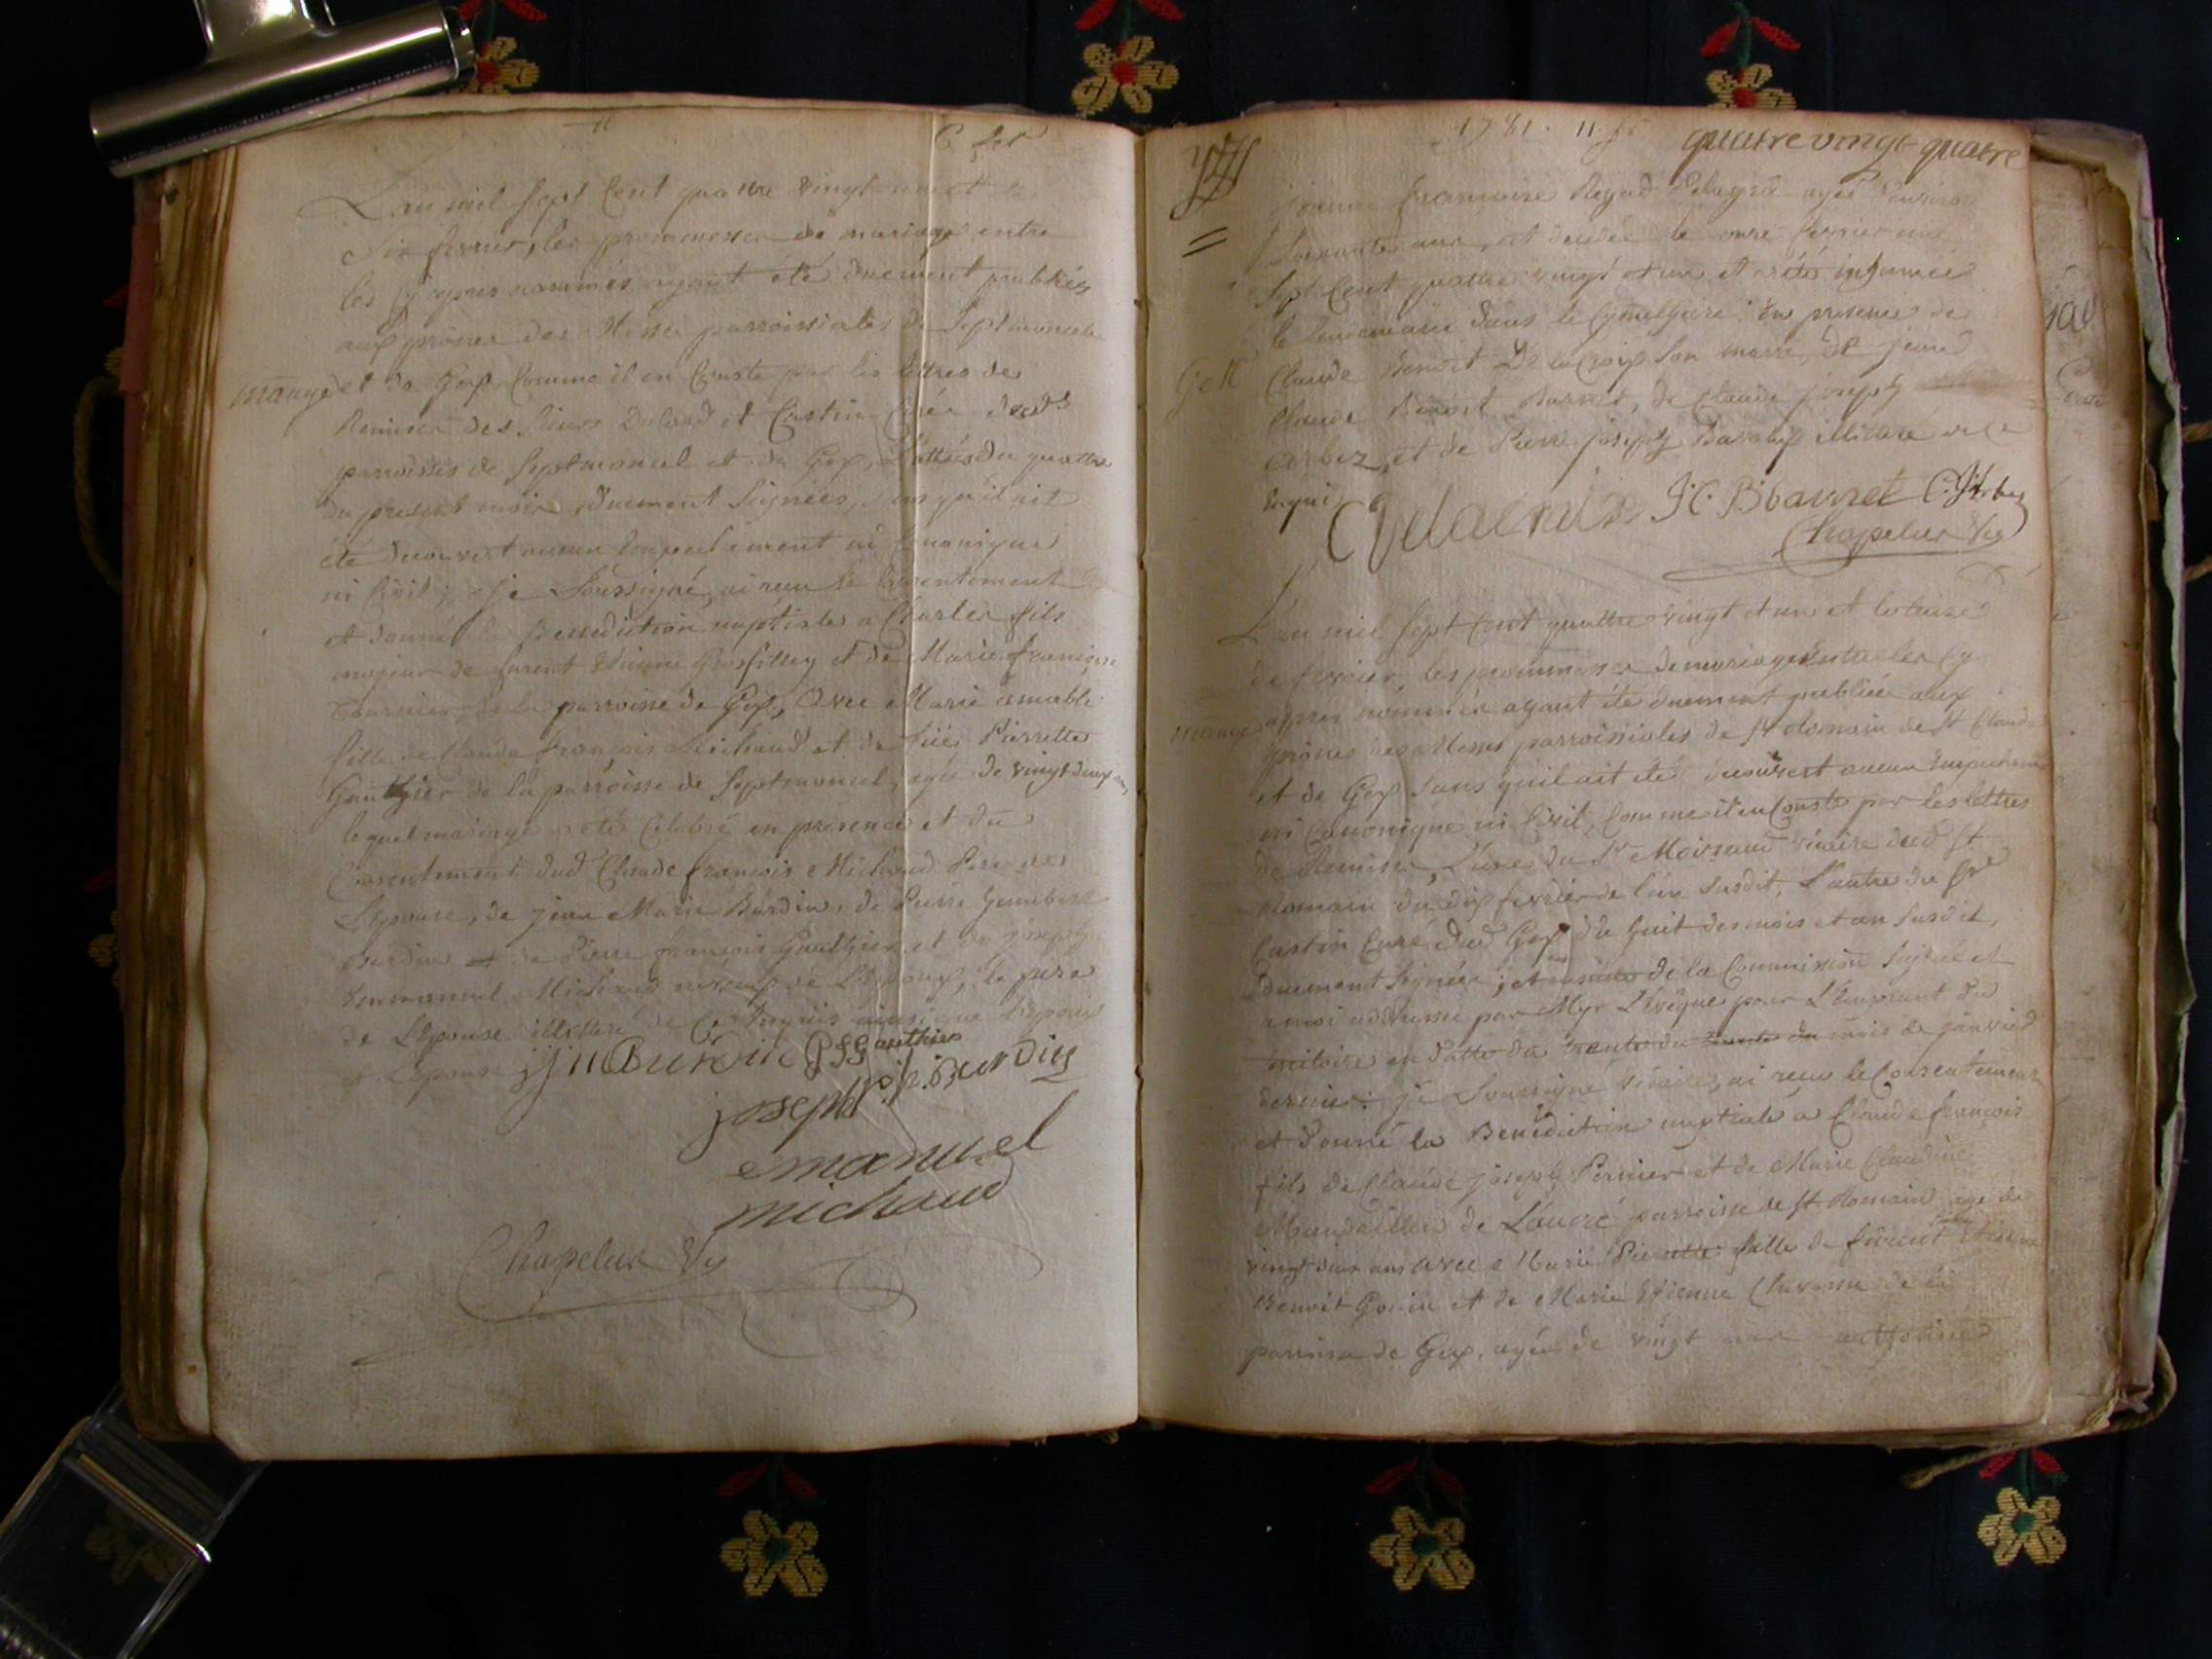 6 fer
L'an mil sept cent quattre vingt un et le
Six fevrier, les prommesses de mariage entre
les cy apres nommés ayant été duement publiées
aux prones des Messes parroissiales de Septmoncel
mariage
et de Gex, comme il en conste par les lettres de
Remises des Sieurs et Castin Curés desds
parroisses de Septmoncel et de Gex, dattées du quattre
du present mois, duement Signées, sans qu'il ait
été decouvert aucun Empechement ni Canonique
ni Civil; je Soussigné ai recu le Consentement
et donné la Benediction nuptiale a Charles fils
majeur de furent Etienne Grosfilley et de Marie françoise
Tournier, de la parroisse de Gex, Avec Marie amable
fille de Claude françois Michaud et de Pierrette
Gauthier de la parroisse de Septmoncel, agée de vingt deux ans,
lequel mariage a été Celebré en presence et du
Consentement dud Claude françois Michaud Pere de
L'épouse, de jean Marie Burdin, de Pierre
Burdin et de Pierre françois Gauthier et de joseph
Emmanuel Michaud de L'époux, le pere
de L'épouse illitteré de ce Enquis ainsi que l'époux
et L'épouse
j m Burdin P F Gauthier
joseph P. j. Burdin
emanuel
michaud
Chapelux Vic
1781. 11. fr
quatre vingt quatre
françoise Regad Pelagru agée d'environ
Soixante ans, est decedée le onze fevrier mil
Sept Cent quattre vingt et un et a été inhumée
le lendemain dans le Cymethiere: En presence de
Claude Benoit De la Croix Son marri, de jean
Claude Benoit Bavret, de Claude joseph
Arbez, et de Pierre joseph illitteré de ce
Enquis
C B delacroix J. C. B bavret C. J. Arbez
Chapelux Vic
L'an mil Sept Cent quattre vingt et un et le treize
de fevrier, les prommesses de mariage Entre les cy
mariage
apres nommés ayant été duement publiées aux
prones des Messes parroissiales de St Romain de St Claude
et de Gex sans qu'il ait été decouvert aucun Empechement
ni Canonique ni Civil, Comme il en Conste par les lettres
de Remises, L'une du Sr Moissaud vicaire dud St
Romain du dix fevrier de l'an Susdit, L'autre du Sr
Castin Curé dud Gex du huit des mois et an Susdit,
duement Signées; et de la Commission
a moi addressée par Mgr L'Evêque pour L'
en datte du trente du mois de janvier
dernier: je Soussigné Vicaire, ai recu le Consentement
et donné la Benediction nuptiale a Claude françois
fils de Claude joseph Pernier et de Marie Claudine
de parroisse de St Romain agé de
vingt ans avec Marie Pierrette fille de furent Etienne
Benoit Gonin et de Marie Etienne de la
parroisse de Gex, agée de vingt ans authorisée